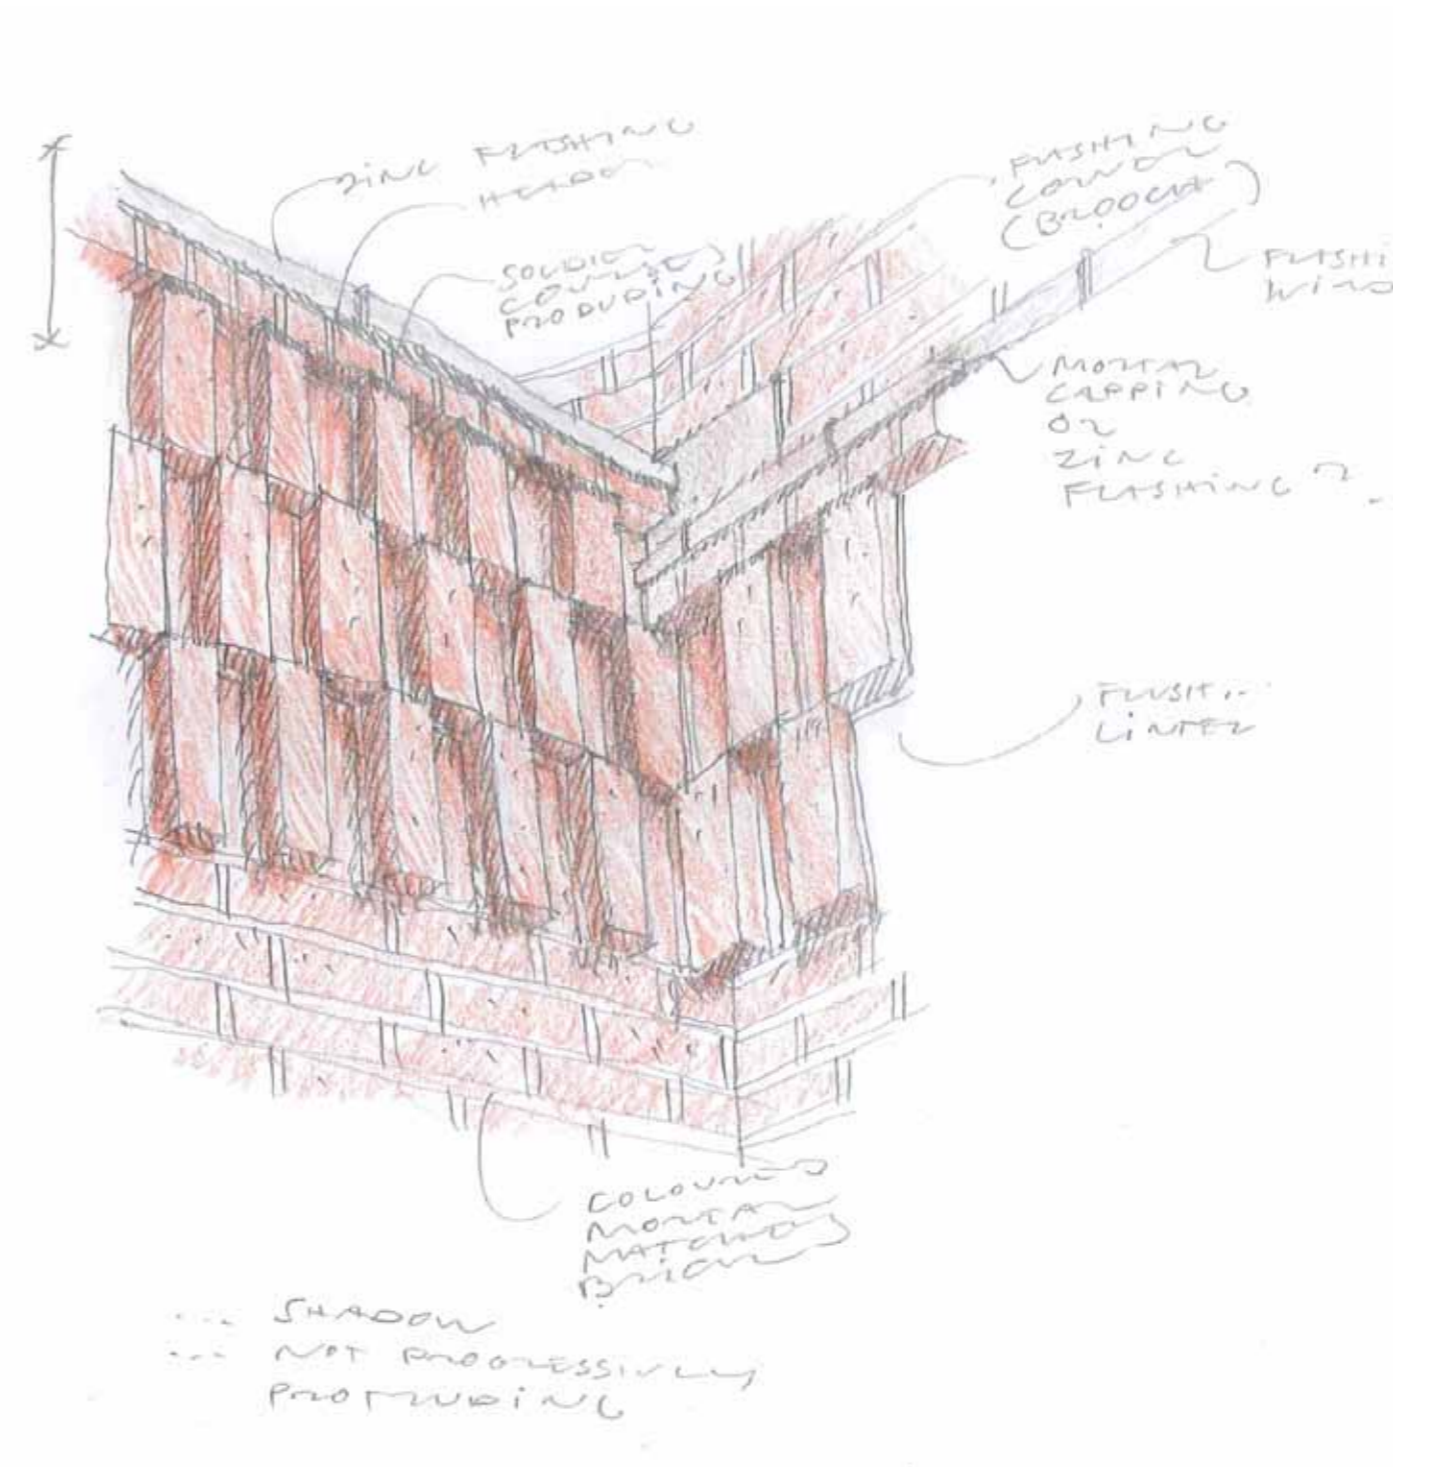 ZINC FLASHING
HEADER
SOLDIER
COURSES
PRODUDING
FLASHING
CORNER
(BROOCH)
FLASHI
WIND
MORTAR
CAPPING
OR
ZINC
FLASHING?
FLUSH...
LINTEL
COLOURED
MORTAR
MATCHES
BRICK
... SHADOW
... NOT PROGRESSIVELY
PROTRUDING